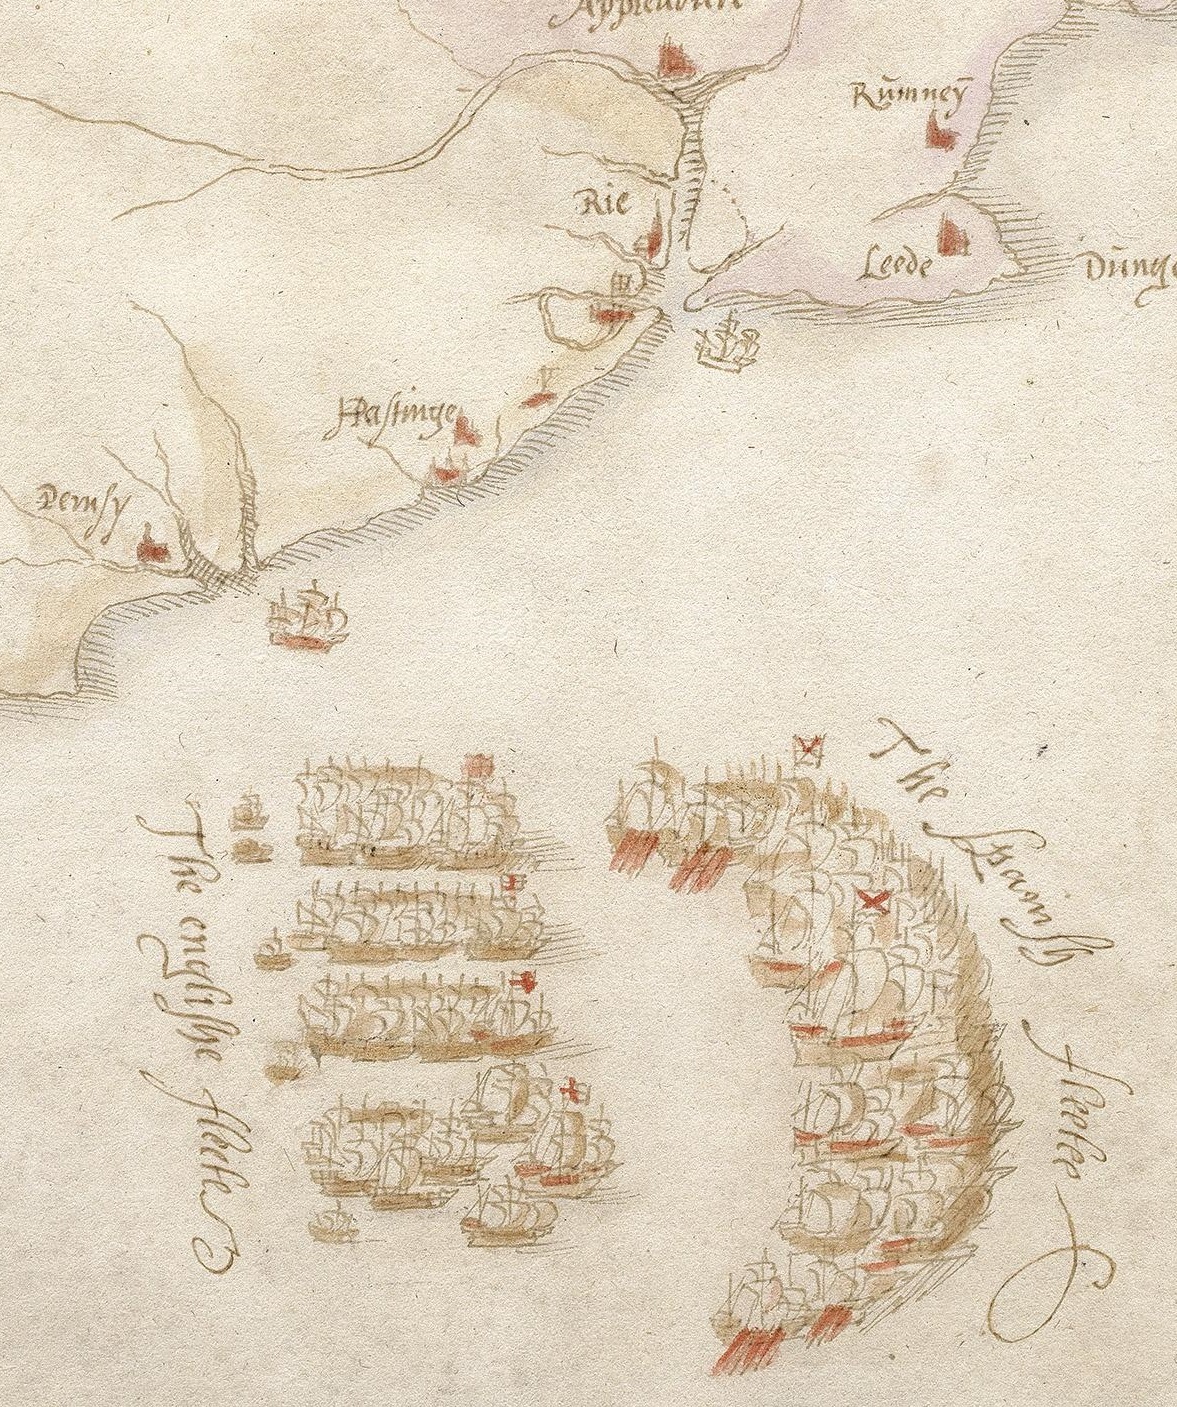 Rūmney
Rie
Leede
Dūnge
Hastinge
Pemsy
The Spanish fleete
The englishe fleete